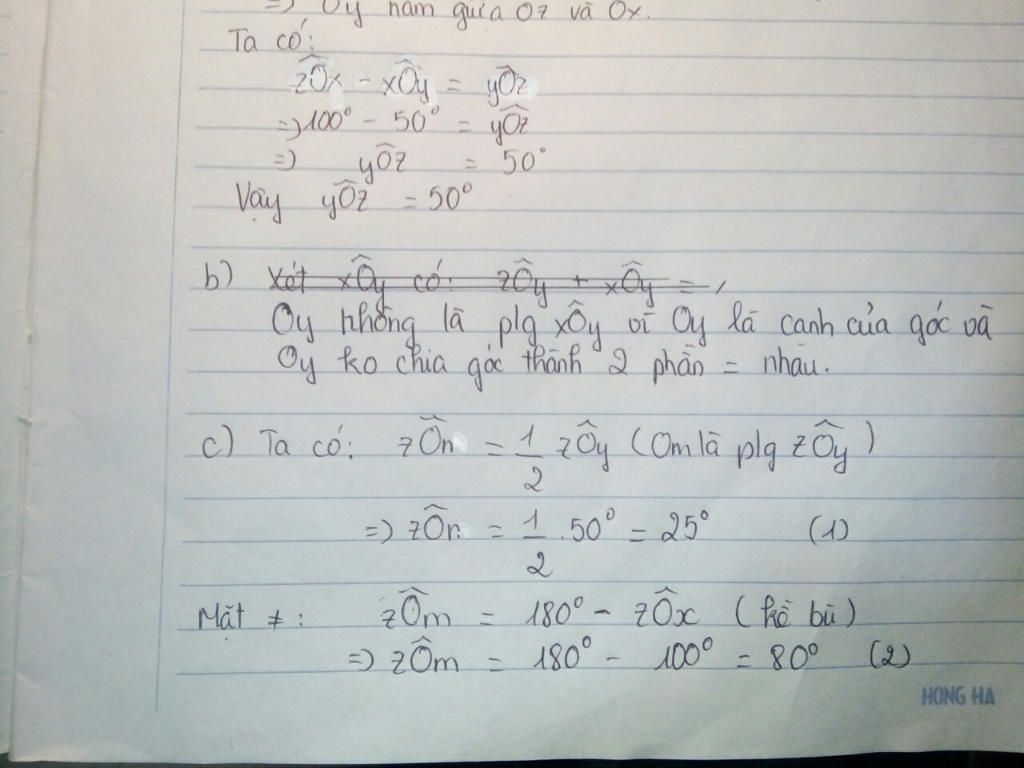 =) Oy nằm giữa Oz và Ox.
Ta có:
zÔx - xÔy = yÔz
=) 100° - 50° = yÔz
=) yÔz = 50°
Vậy yÔz = 50°
b) Xét xÔy có: zÔy + xÔy =
Oy không là plg xÔy vì Oy là cạnh của góc và
Oy ko chia góc thành 2 phần = nhau.
c) Ta có: zÔn = 1/2 zÔy (Om là plg zÔy)
=) zÔn = 1/2 . 50° = 25° (1)
Mặt ≠ : zÔm = 180° - zÔx (kề bù)
=) zÔm = 180° - 100° = 80° (2)
HONG HA